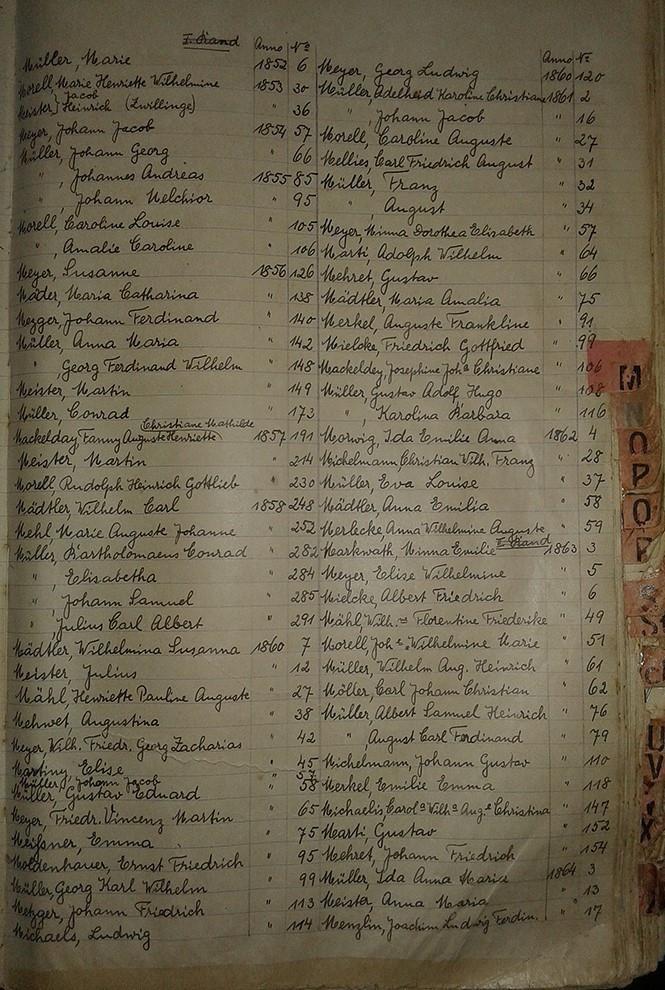 I. Band
Anno Nº
Müller, Marie 1852 6
Morell, Marie Henriette Wilhelmine 1853 30
Meister} Jacob
Heinrich (Zwillinge) " 36
Meyer, Johann Jacob 1854 57
Müller, Johann Georg " 66
" , Johannes Andreas 1855 85
" , Johann Melchior " 95
Morell, Caroline Louise " 105
" , Amalie Caroline " 106
Meyer, Susanne 1856 126
Mäder, Maria Catharina " 138
Mezger Johann Ferdinand " 140
Müller, Anna Maria " 142
" , Georg Ferdinand Wilhelm " 148
Meister, Martin " 149
Müller, Conrad " 173
Christiane Mathilde
Mackelday, Fanny Auguste Henriette 1857 191
Meister, Martin " 214
Morell, Rudolph Heinrich Gottlieb " 230
Mädtler, Wilhelm Carl 1858 248
Mehl, Marie Auguste Johanne " 252
Müller, Bartholomaeus Conrad " 282
" , Elisabetha " 284
" , Johann Samuel " 285
" , Julius Carl Albert " 291
Mädtler, Wilhelmina Susanna 1860 7
Meister, Julius " 12
Mähl, Henriette Pauline Auguste " 27
Mehwet, Augustina " 38
Meyer, Wilh. Friedr. Georg Zacharias " 42
Martiny, Elise " 45
Müller, Johann Jacob " 57
Müller, Gustav Eduard " 58
Meyer, Friedr. Vincenz Martin " 65
Meißner, Emma " 75
Moldenhauer, Ernst Friedrich " 95
Müller, Georg Karl Wilhelm " 99
Metzger, Johann Friedrich " 113
Michaels, Ludwig " 114
Anno Nº
Meyer, Georg Ludwig 1860 120
Müller, Adelheid Karoline Christiane 1861 2
" , Johann Jacob " 16
Morell, Caroline Auguste " 27
Mellies, Carl Friedrich August " 31
Müller, Franz " 32
" , August " 34
Meyer, Minna Dorothea Elisabeth " 57
Marti, Adolph Wilhelm " 64
Mehret, Gustav " 66
Mädtler, Maria Amalia " 75
Merkel, Auguste Frankline " 91
Mielcke, Friedrich Gottfried " 99
Mackeldey, Josephine Joha Christiane " 106
Müller, Gustav Adolf Hugo " 108
" , Karolina Barbara " 116
Morwig, Ida Emilie Anna 1862 4
Michelmann, Christian Wilh. Franz " 28
Müller, Eva Louise " 37
Mädtler, Anna Emilia " 58
Merlecke, Anna Wilhelmine Auguste " 59
II. Band
Markwath, Minna Emilie 1863 3
Meyer, Elise Wilhelmine " 5
Mielcke, Albert Friedrich " 6
Mähl, Wilhne Florentine Friederike " 49
Morell, Johe Wilhelmine Marie " 51
Müller, Wilhelm Aug. Heinrich " 61
Möller, Carl Johann Christian " 62
Müller, Albert Samuel Heinrich " 76
" , August Carl Ferdinand " 79
Michelmann, Johann Gustav " 110
Merkel, Emilie Emma " 118
Michaelis, Carola Wilha Auge Christina " 147
Marti, Gustav " 152
Mehret, Johann Friedrich " 154
Müller, Ida Anna Maria 1864 3
Meister, Anna Maria " 13
Menzlin, Joachim Ludwig Ferdin. " 17
M
N
O
P